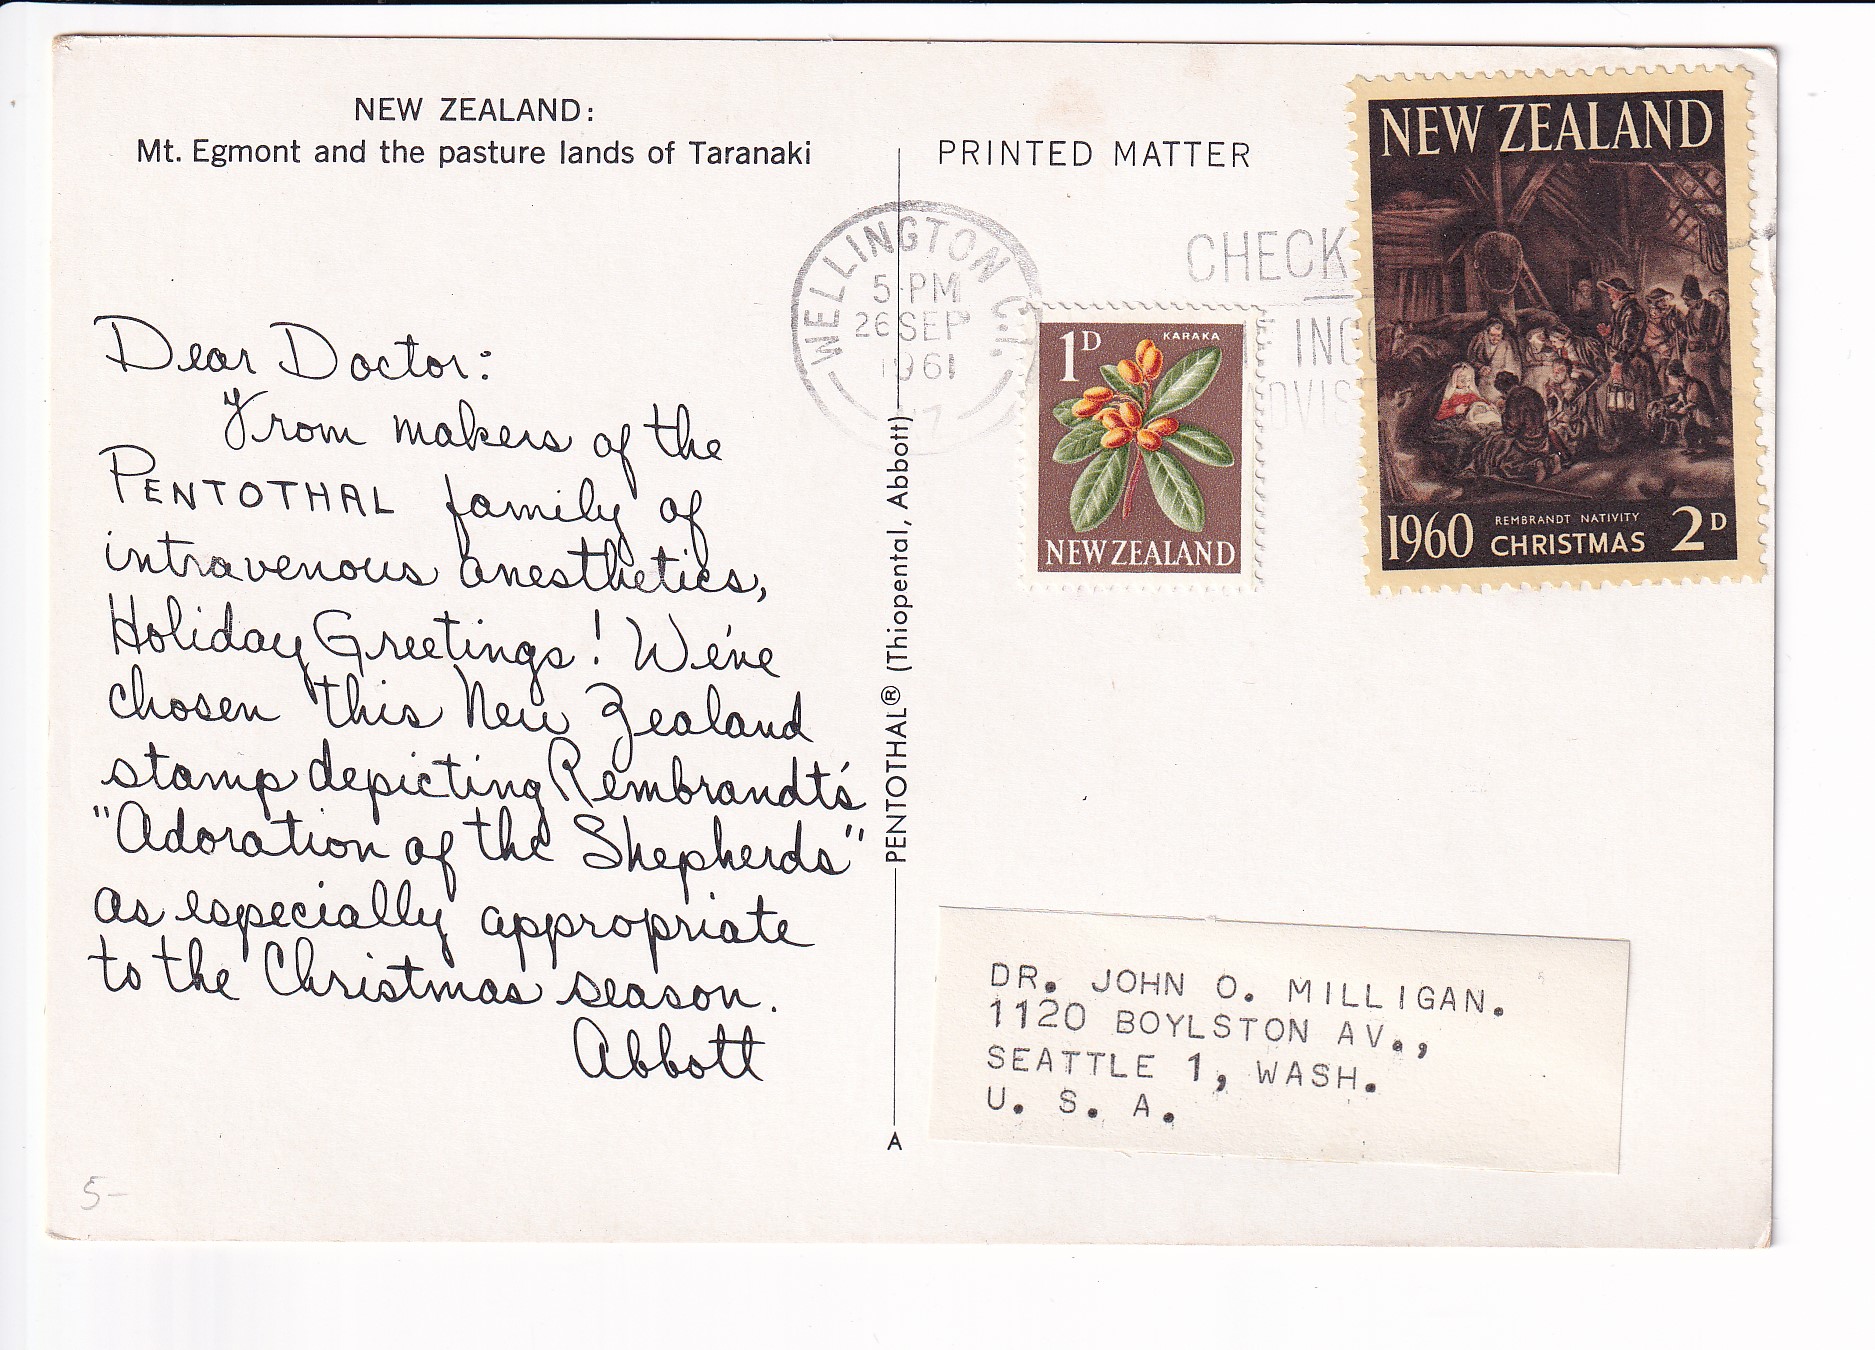 NEW ZEALAND:
Mt. Egmont and the pasture lands of Taranaki
Dear Doctor:
From makers of the
PENTOTHAL family of
intravenous anesthetics,
Holiday Greetings! We've
chosen this New Zealand
stamp depicting Rembrandt's
"Adoration of the Shepherds"
as especially appropriate
to the Christmas season.
Abbott
5-
PENTOTHAL® (Thiopental, Abbott)
A
PRINTED MATTER
WELLINGTON C.1.
5 PM
26 SEP
1961
CHECK
1D
KARAKA
NEW ZEALAND
NEW ZEALAND
1960
REMBRANDT NATIVITY
CHRISTMAS
2D
DR. JOHN O. MILLIGAN.
1120 BOYLSTON AV.,
SEATTLE 1, WASH.
U. S. A.